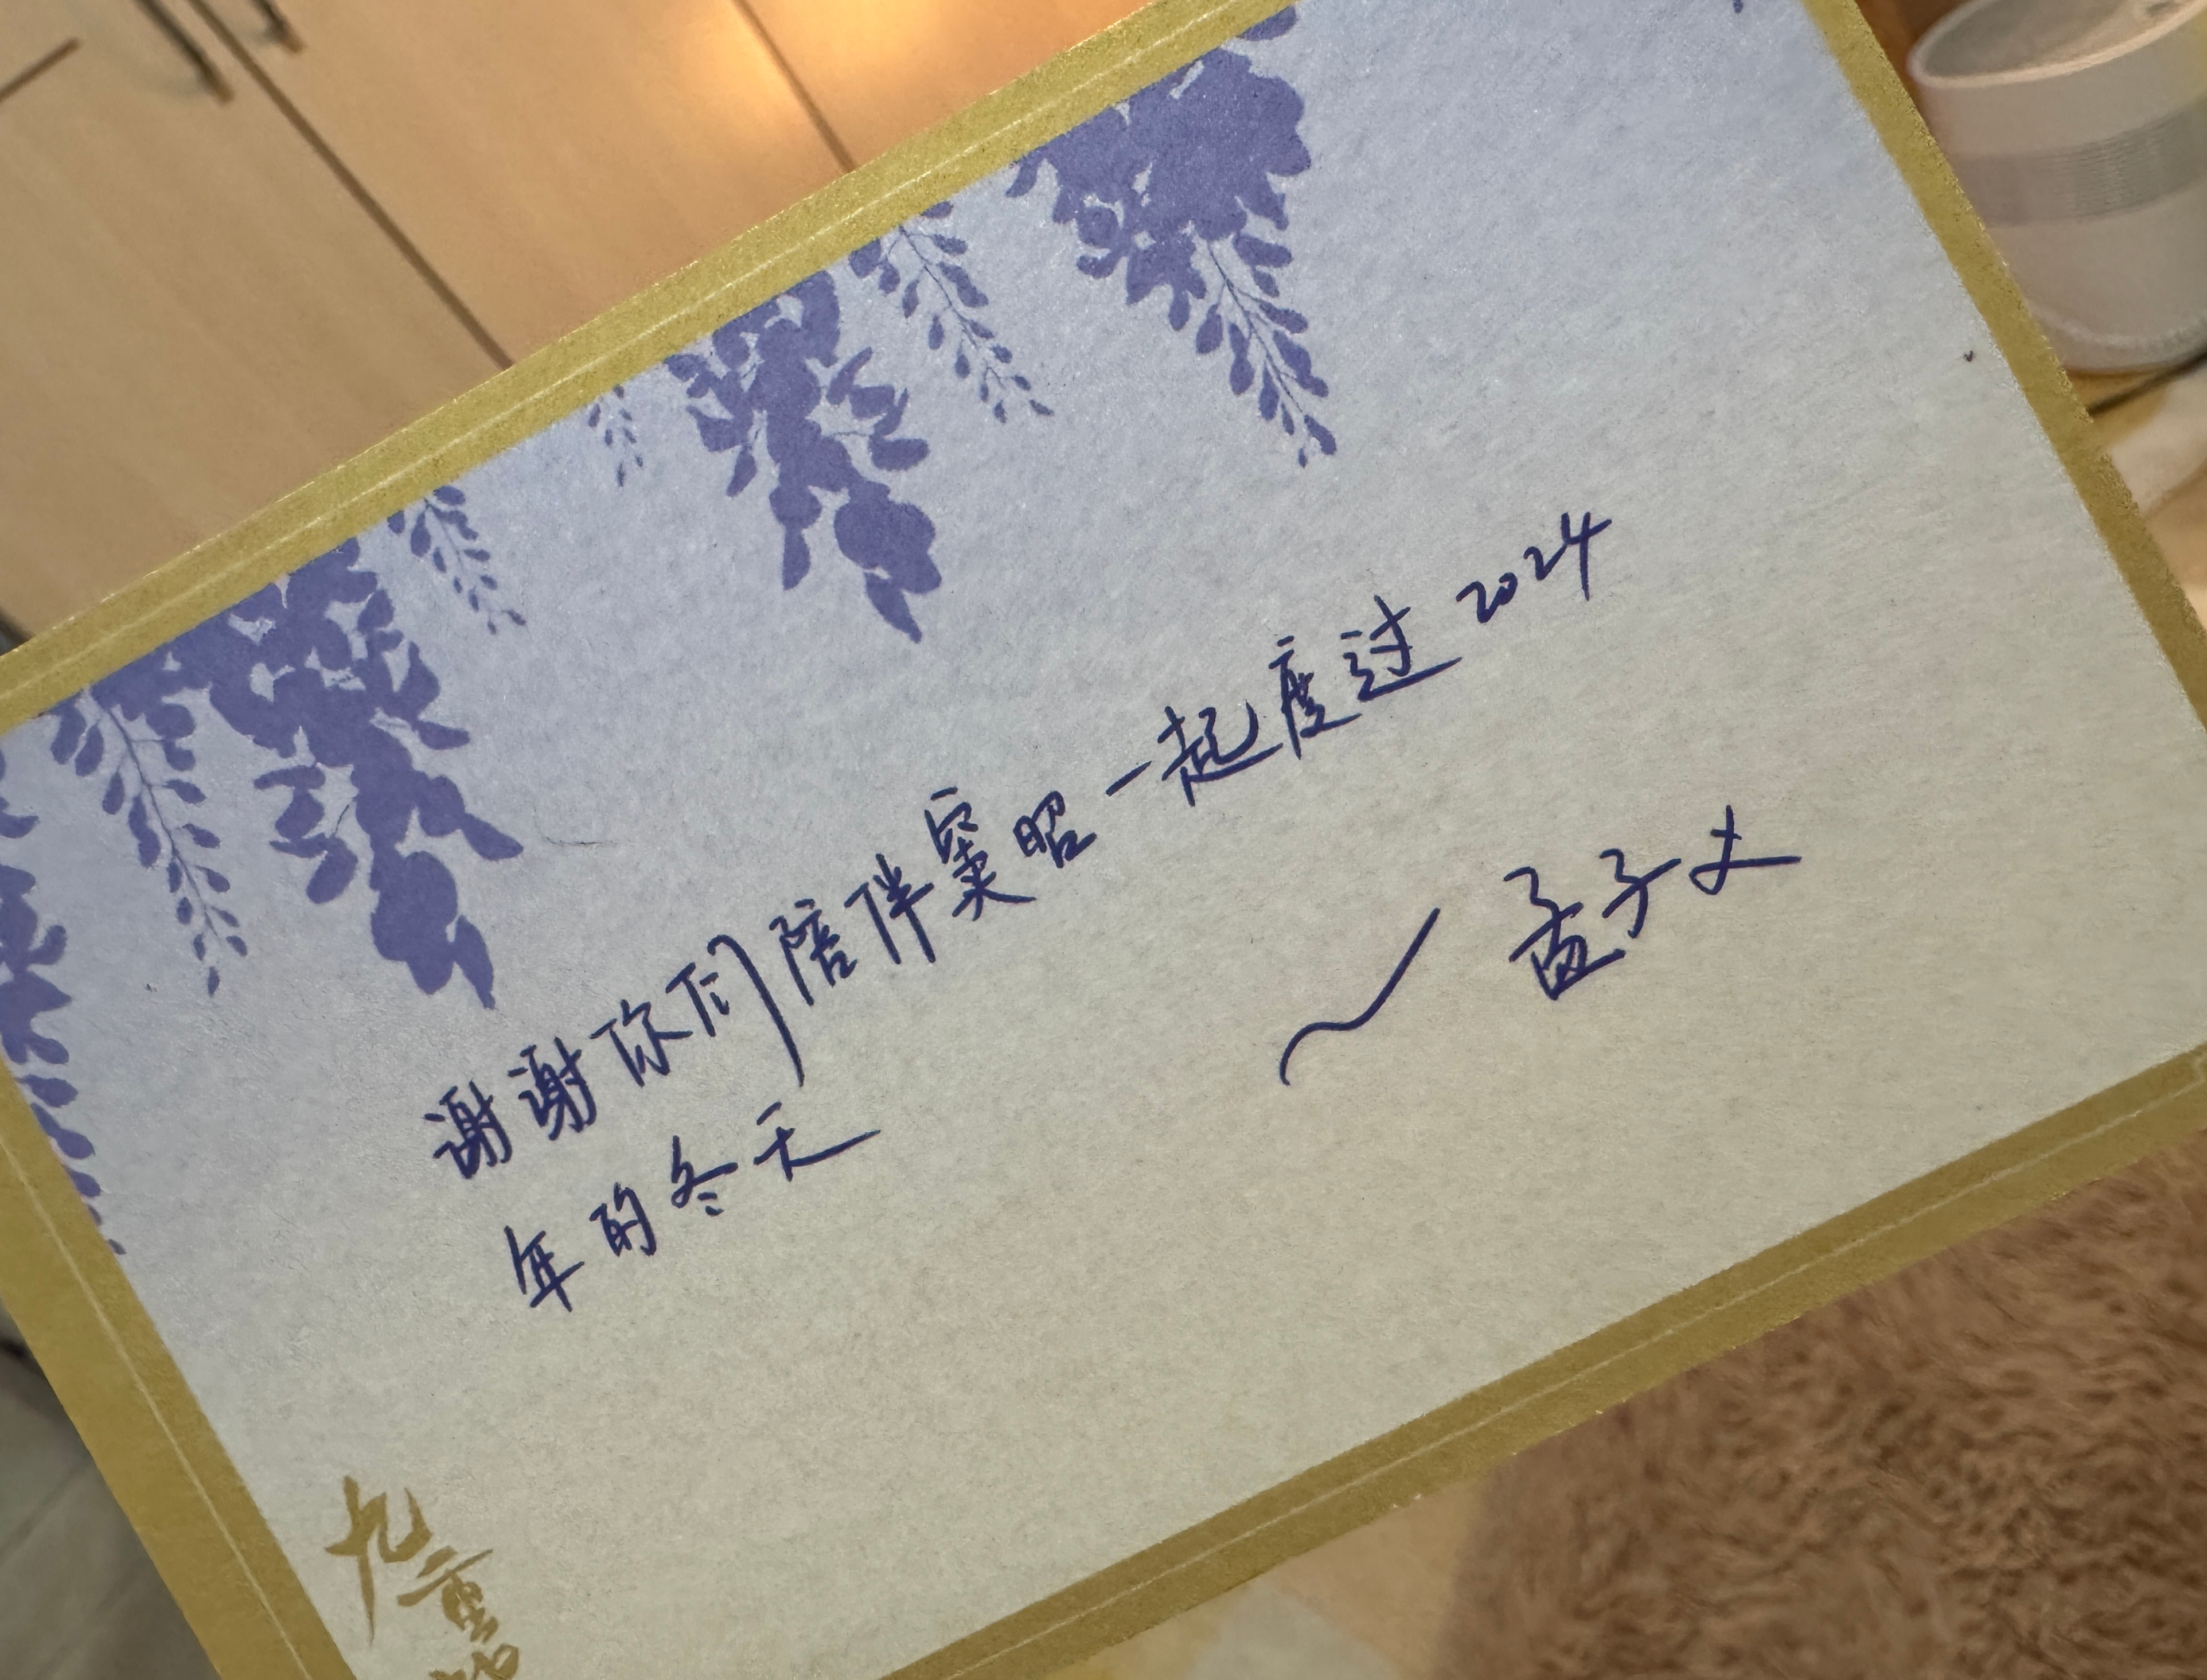 谢谢你们陪伴窦昭一起度过2024
年的冬天
孟子义
九重